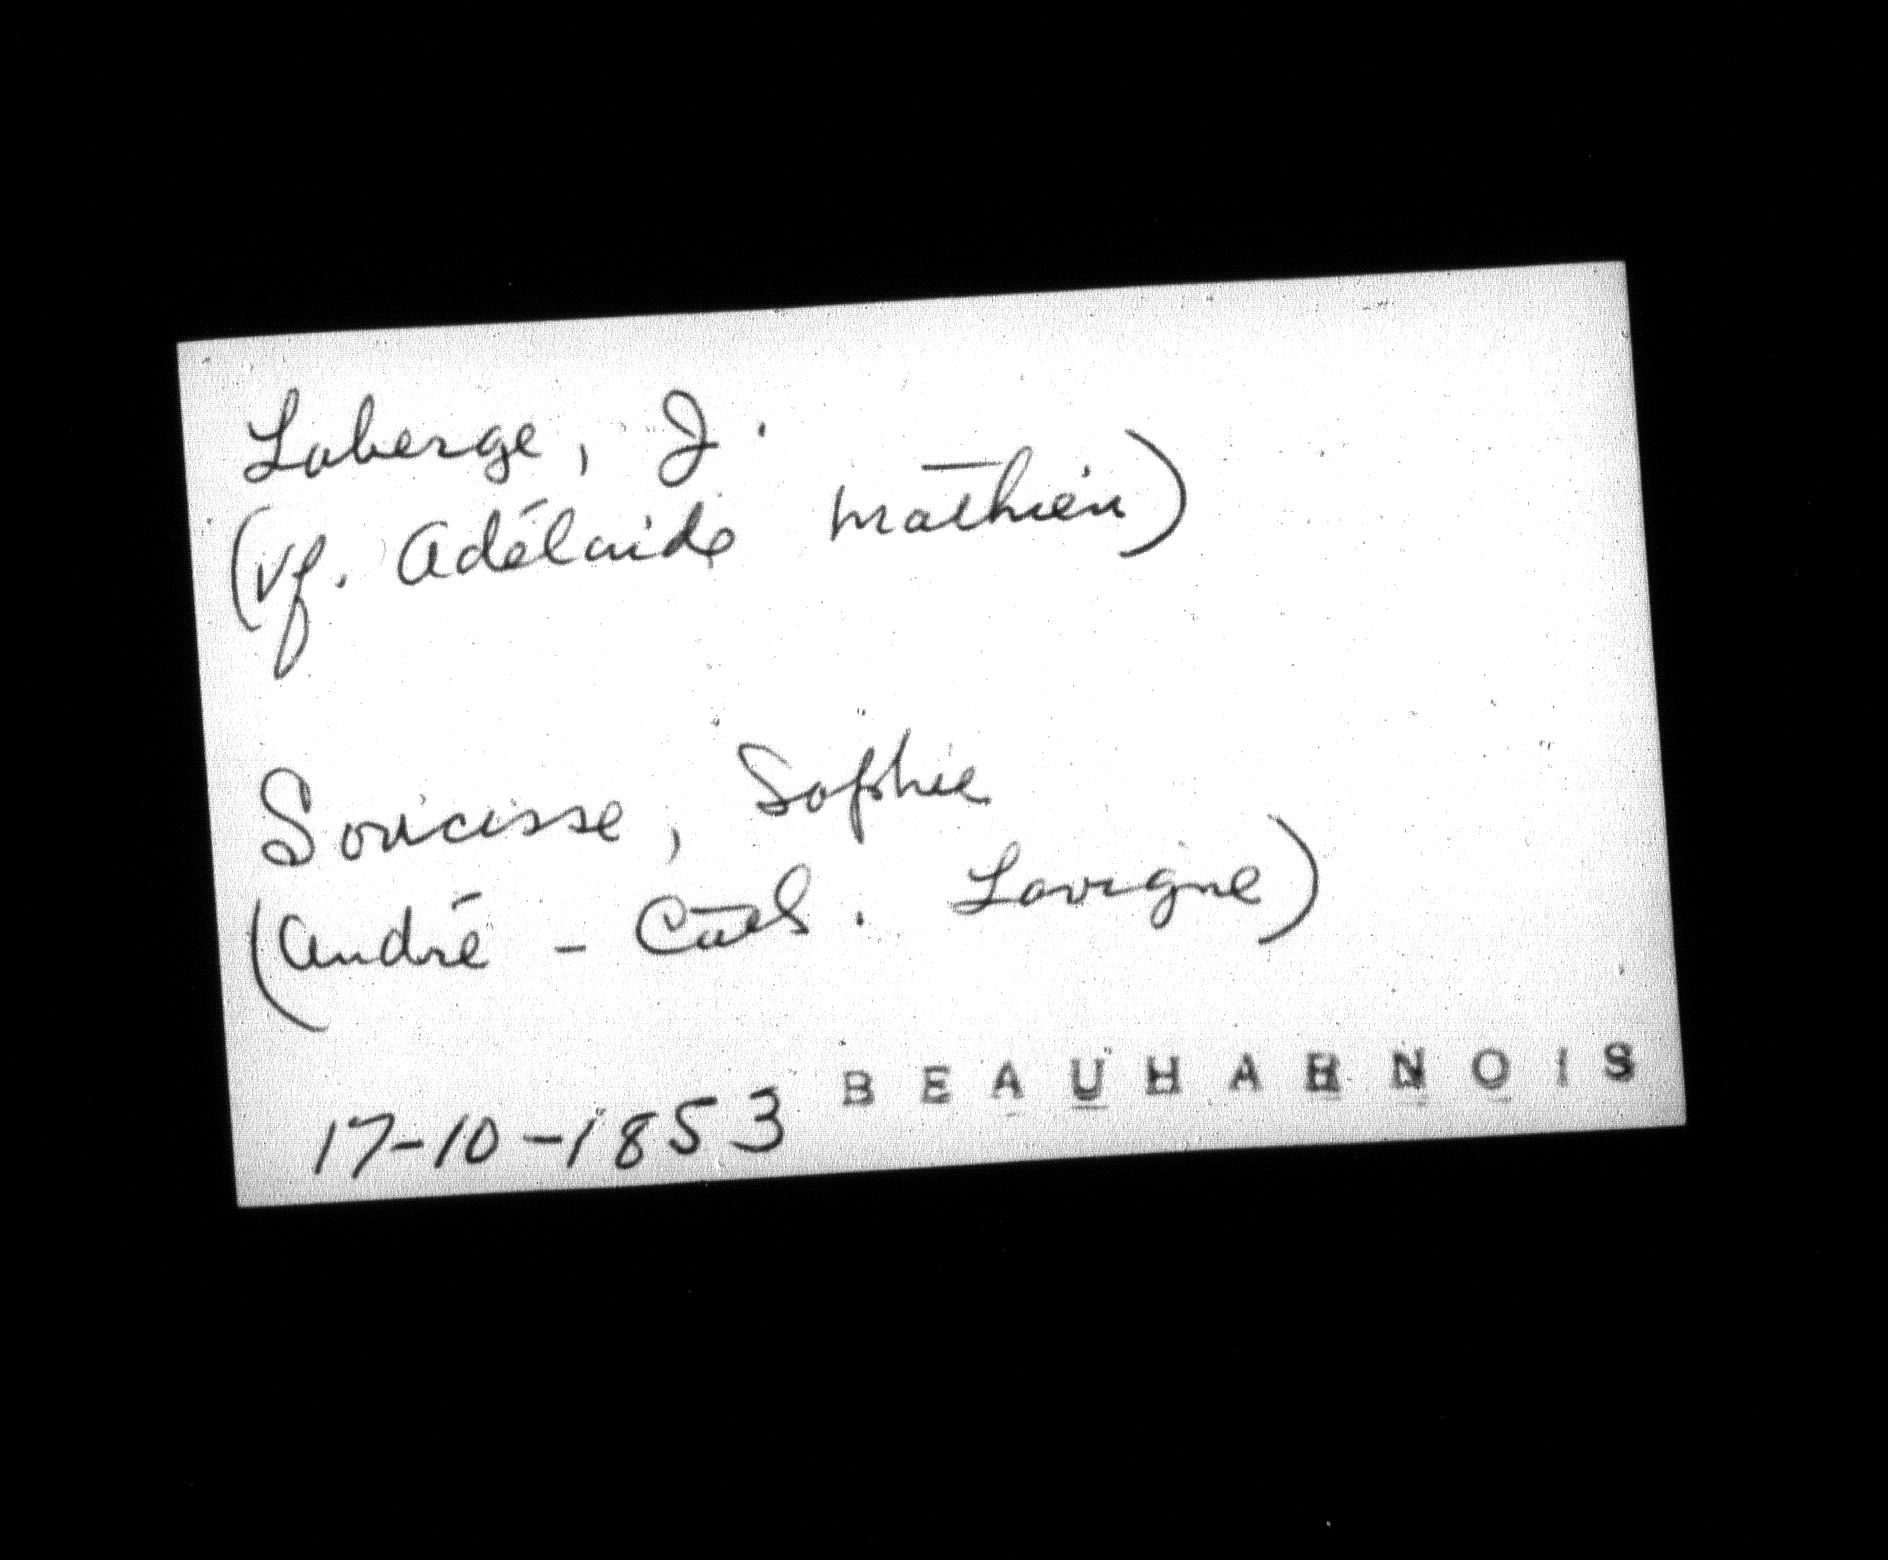 Laberge, J.
(vf. Adélaide Mathieu)
Sovicisse, Sophie
(André - Cath. Lavigne)
17-10-1853 BEAUHARNOIS